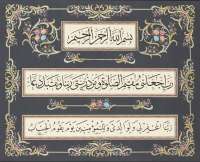 بسم الله الرحمن الرحيم
رب اجعلني مقيم الصلوة ومن ذريتي ربنا وتقبل دعاء
ربنا اغفر لي ولوالدي وللمؤمنين يوم يقوم الحساب